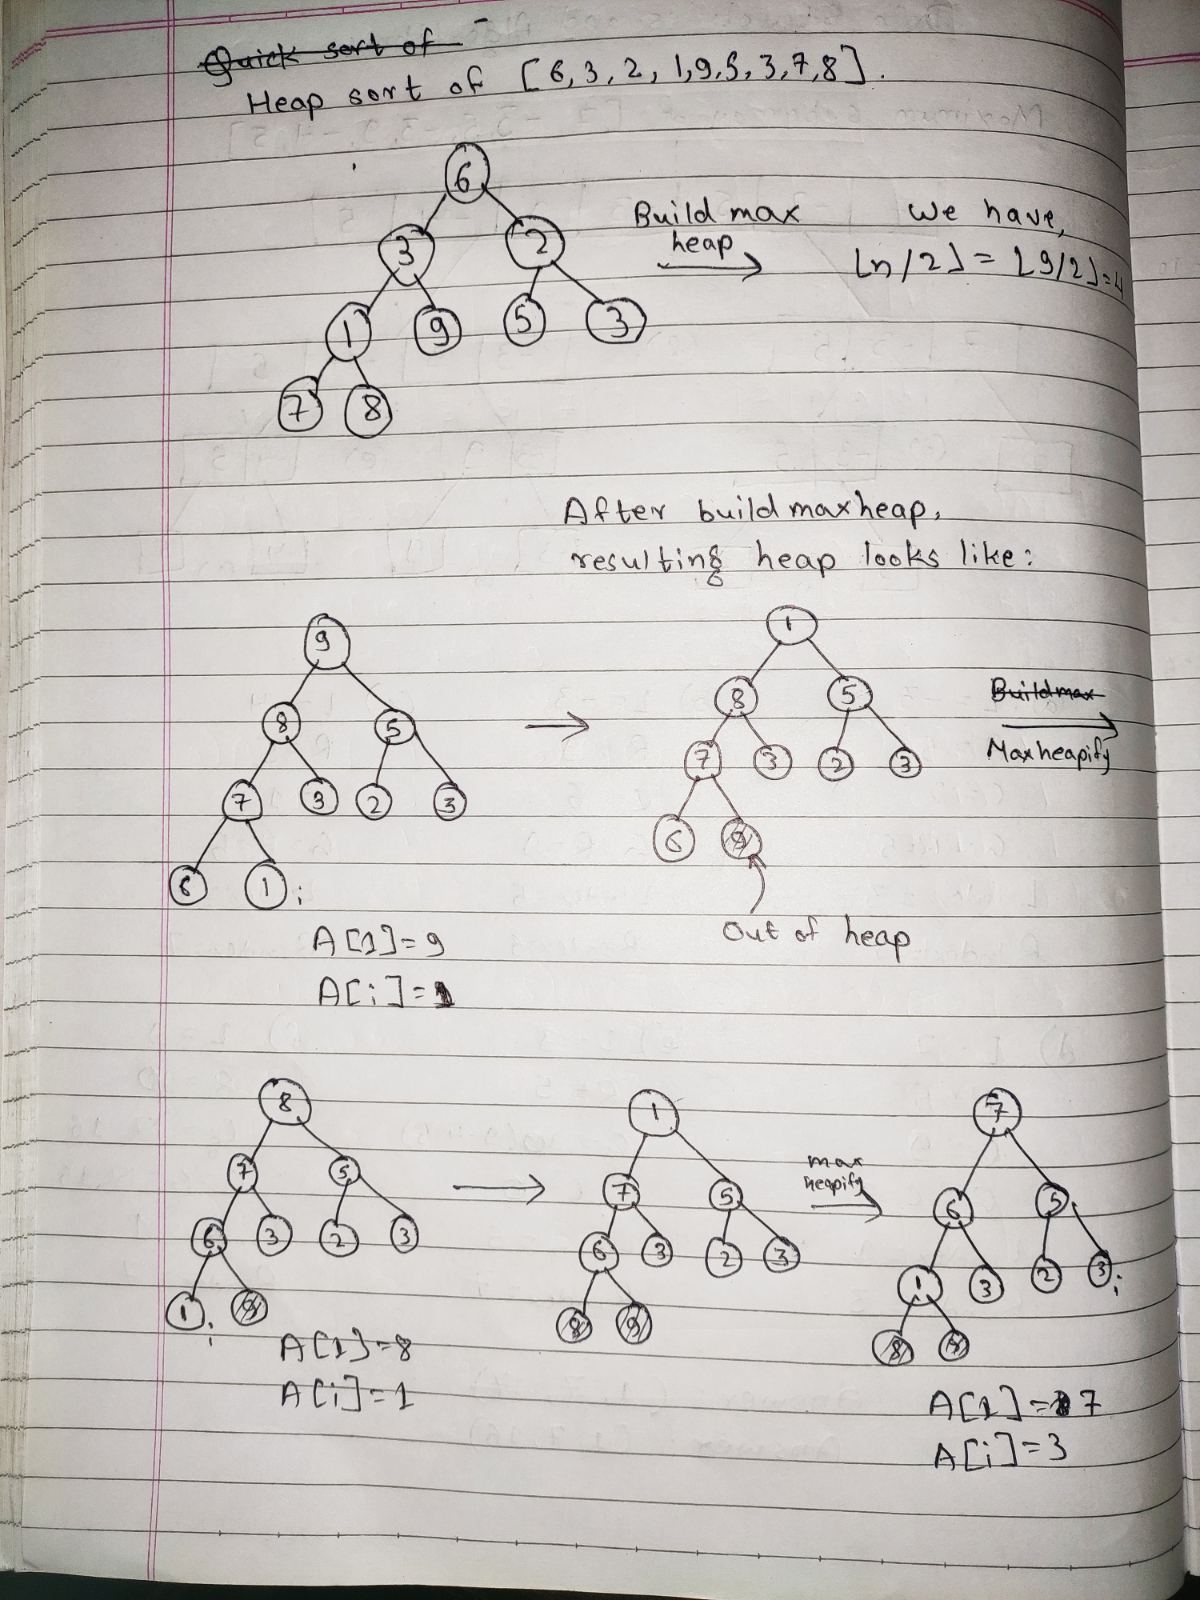 Quick sort of
Heap sort of [6, 3, 2, 1, 9, 5, 3, 7, 8].
6
3 2
1 9 5 3
7 8
Build max
heap
We have,
⌊n/2⌋ = ⌊9/2⌋ = 4
After build maxheap,
resulting heap looks like:
9
8 5
7 3 2 3
6 1 i
A[1] = 9
A[i] = 1
1
8 5
7 3 2 3
6 9
Out of heap
Build max
Maxheapify
8
7 5
6 3 2 3
1 i 9
A[1] = 8
A[i] = 1
1
7 5
6 3 2 3
8 9
max
heapify
7
6 5
1 3 2 3 i
8 9
A[1] = 7
A[i] = 3